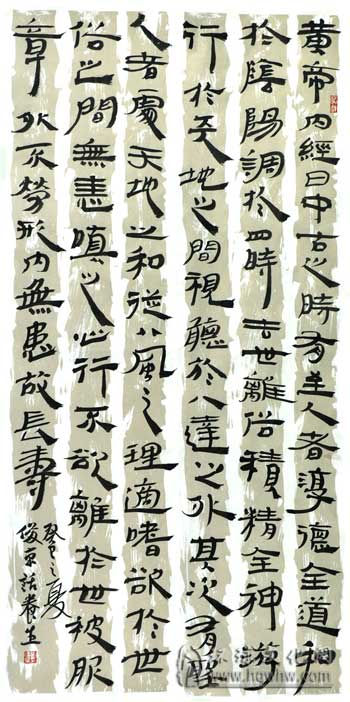 黄帝内經曰中古之時有至人者淳德全道和
於陰陽調於四時去世離俗積精全神游
行於天地之間視聽於八達之外其次有聖
人者處天地之和從八風之理適嗜欲於世
俗之間無恚嗔之心行不欲離於世被服
章外不勞形内無患故長壽
癸巳之夏
俊京話養生
www.howhw.com